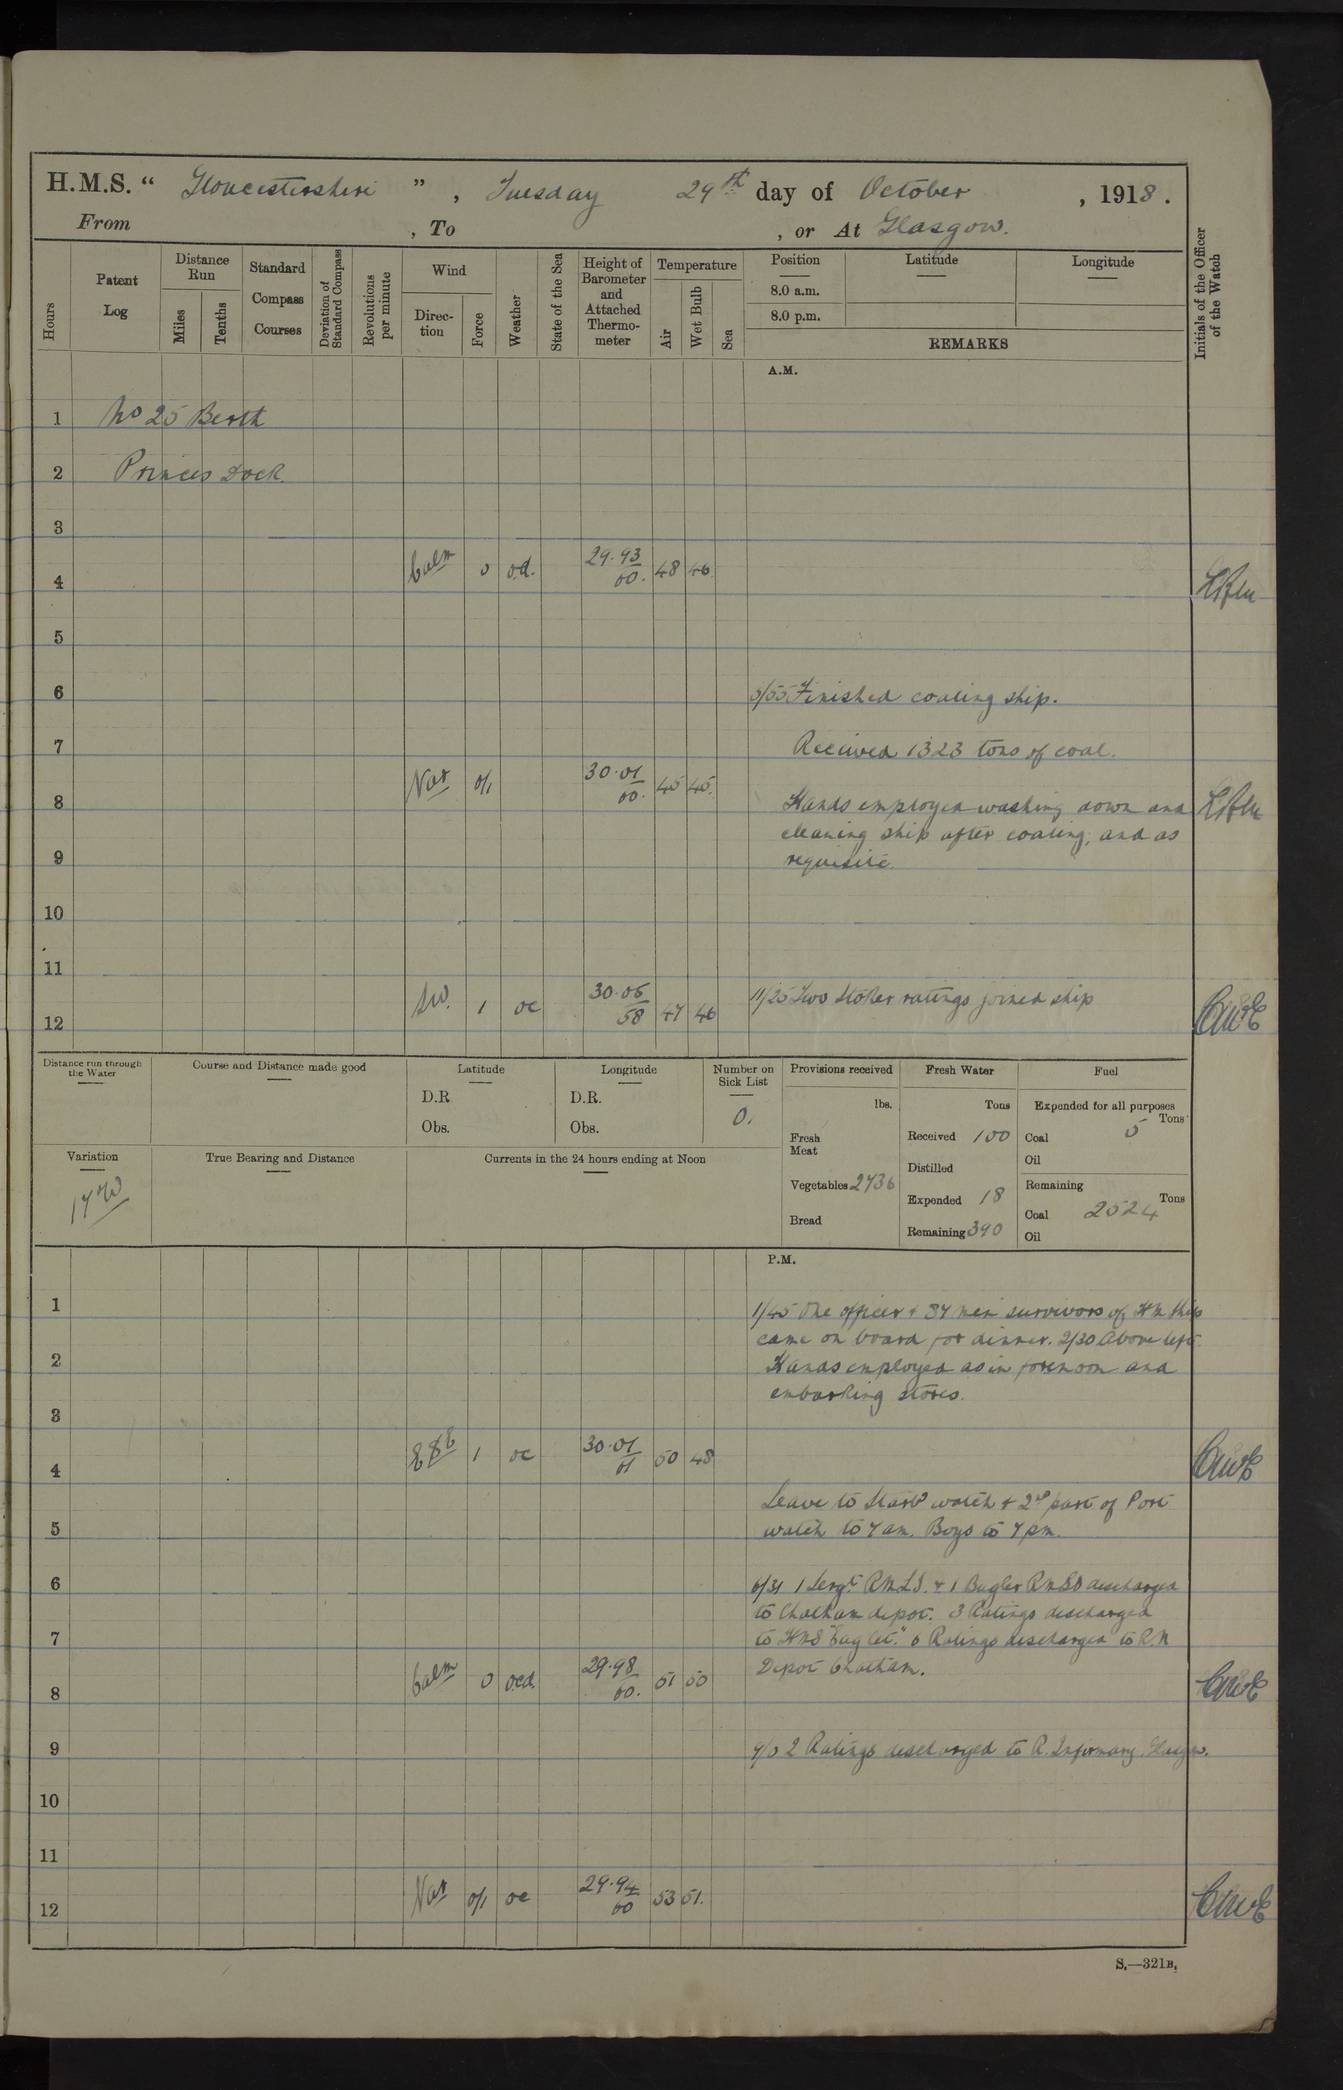 H.M.S. " Gloucestershire ", Tuesday 29th day of October, 1918.
From , To , or At Glasgow.
Hours
Patent Log
Distance Run
Miles
Tenths
Standard Compass Courses
Deviation of Standard Compass
Revolutions per minute
Wind
Direction
Force
Weather
State of the Sea
Height of Barometer and Attached Thermometer
Temperature
Air
Wet Bulb
Sea
Position
Latitude
Longitude
8.0 a.m.
8.0 p.m.
REMARKS
Initials of the Officer of the Watch
A.M.
1 No 25 Berth
2 Princes Dock.
3
4 Calm 0 o.d. 29.93 60. 48 46
5
6 5/55 Finished coaling ship.
7 Received 1323 tons of coal.
8 Var 0/1 30.01 60. 45 45. Hands employed washing down and
cleaning ship after coaling, and as
9 requisite.
10
11
12 SW. 1 oc 30.05 58 47 46 11/25 Two Stoker ratings joined ship
Distance run through the Water
Course and Distance made good
Latitude
D.R
Obs.
Longitude
D.R.
Obs.
Number on Sick List
0.
Provisions received
lbs.
Fresh Meat
Vegetables 2736
Bread
Fresh Water
Tons
Received 100
Distilled
Expended 18
Remaining 390
Fuel
Expended for all purposes
Tons
Coal 5
Oil
Remaining
Tons
Coal 2524
Oil
Variation
True Bearing and Distance
Currents in the 24 hours ending at Noon
P.M.
1 1/45 One officer & 37 men survivors of HM Ship
came on board for dinner. 2/30 Above left
2 Hands employed as in forenoon and
embarking stores.
3
4 ESE 1 oc 30.01 61 50 48
Leave to Starbd watch & 2nd part of Port
5 watch to 7 am. Boys to 7 pm.
6 6/31 1 Sergt R.M.L.I. & 1 Bugler discharged
to Chatham depot. 3 Ratings discharged
7 to HMS "Eaglet." 6 Ratings discharged to R.N
Depot Chatham.
8 Calm 0 ocd. 29.98 60. 51 50
9 2 Ratings discharged to R. Infirmary. Glasgow.
10
11
12 Var 0/1 oc 29.94 60 53 51.
S.—321B.